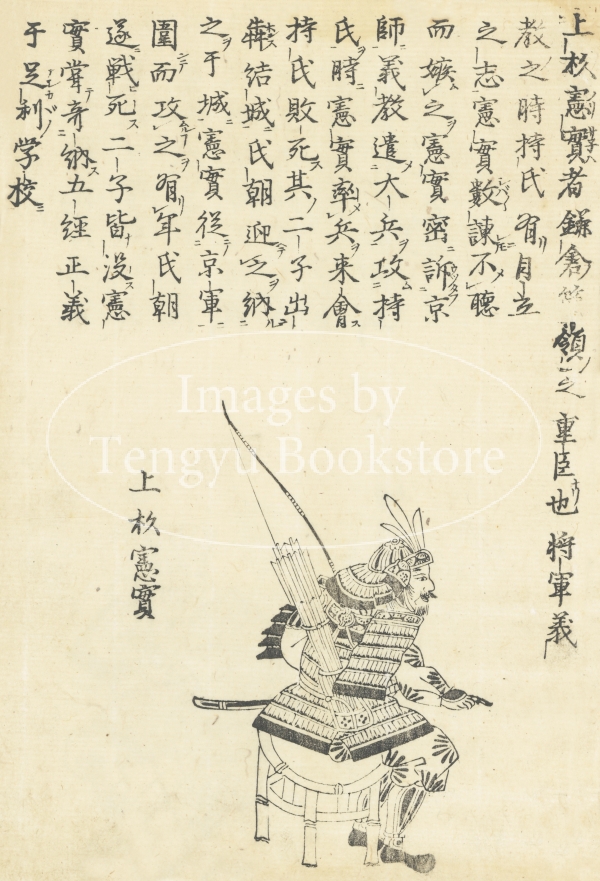 上杦憲實者鎌倉管領之重臣也将軍義
教之時持氏有自立
之志憲實数諫不聴
而嫉之憲實密訴京
師義教遣大兵攻持
氏時憲實率兵来會
持氏敗死其二子出
犇結城氏朝迎之納
之于城憲實従京軍
圍而攻之有年氏朝
遂戦死二子皆没憲
實甞寄納五經正義
于足利学校
上杦憲實
Images by
Tengyu Bookstore